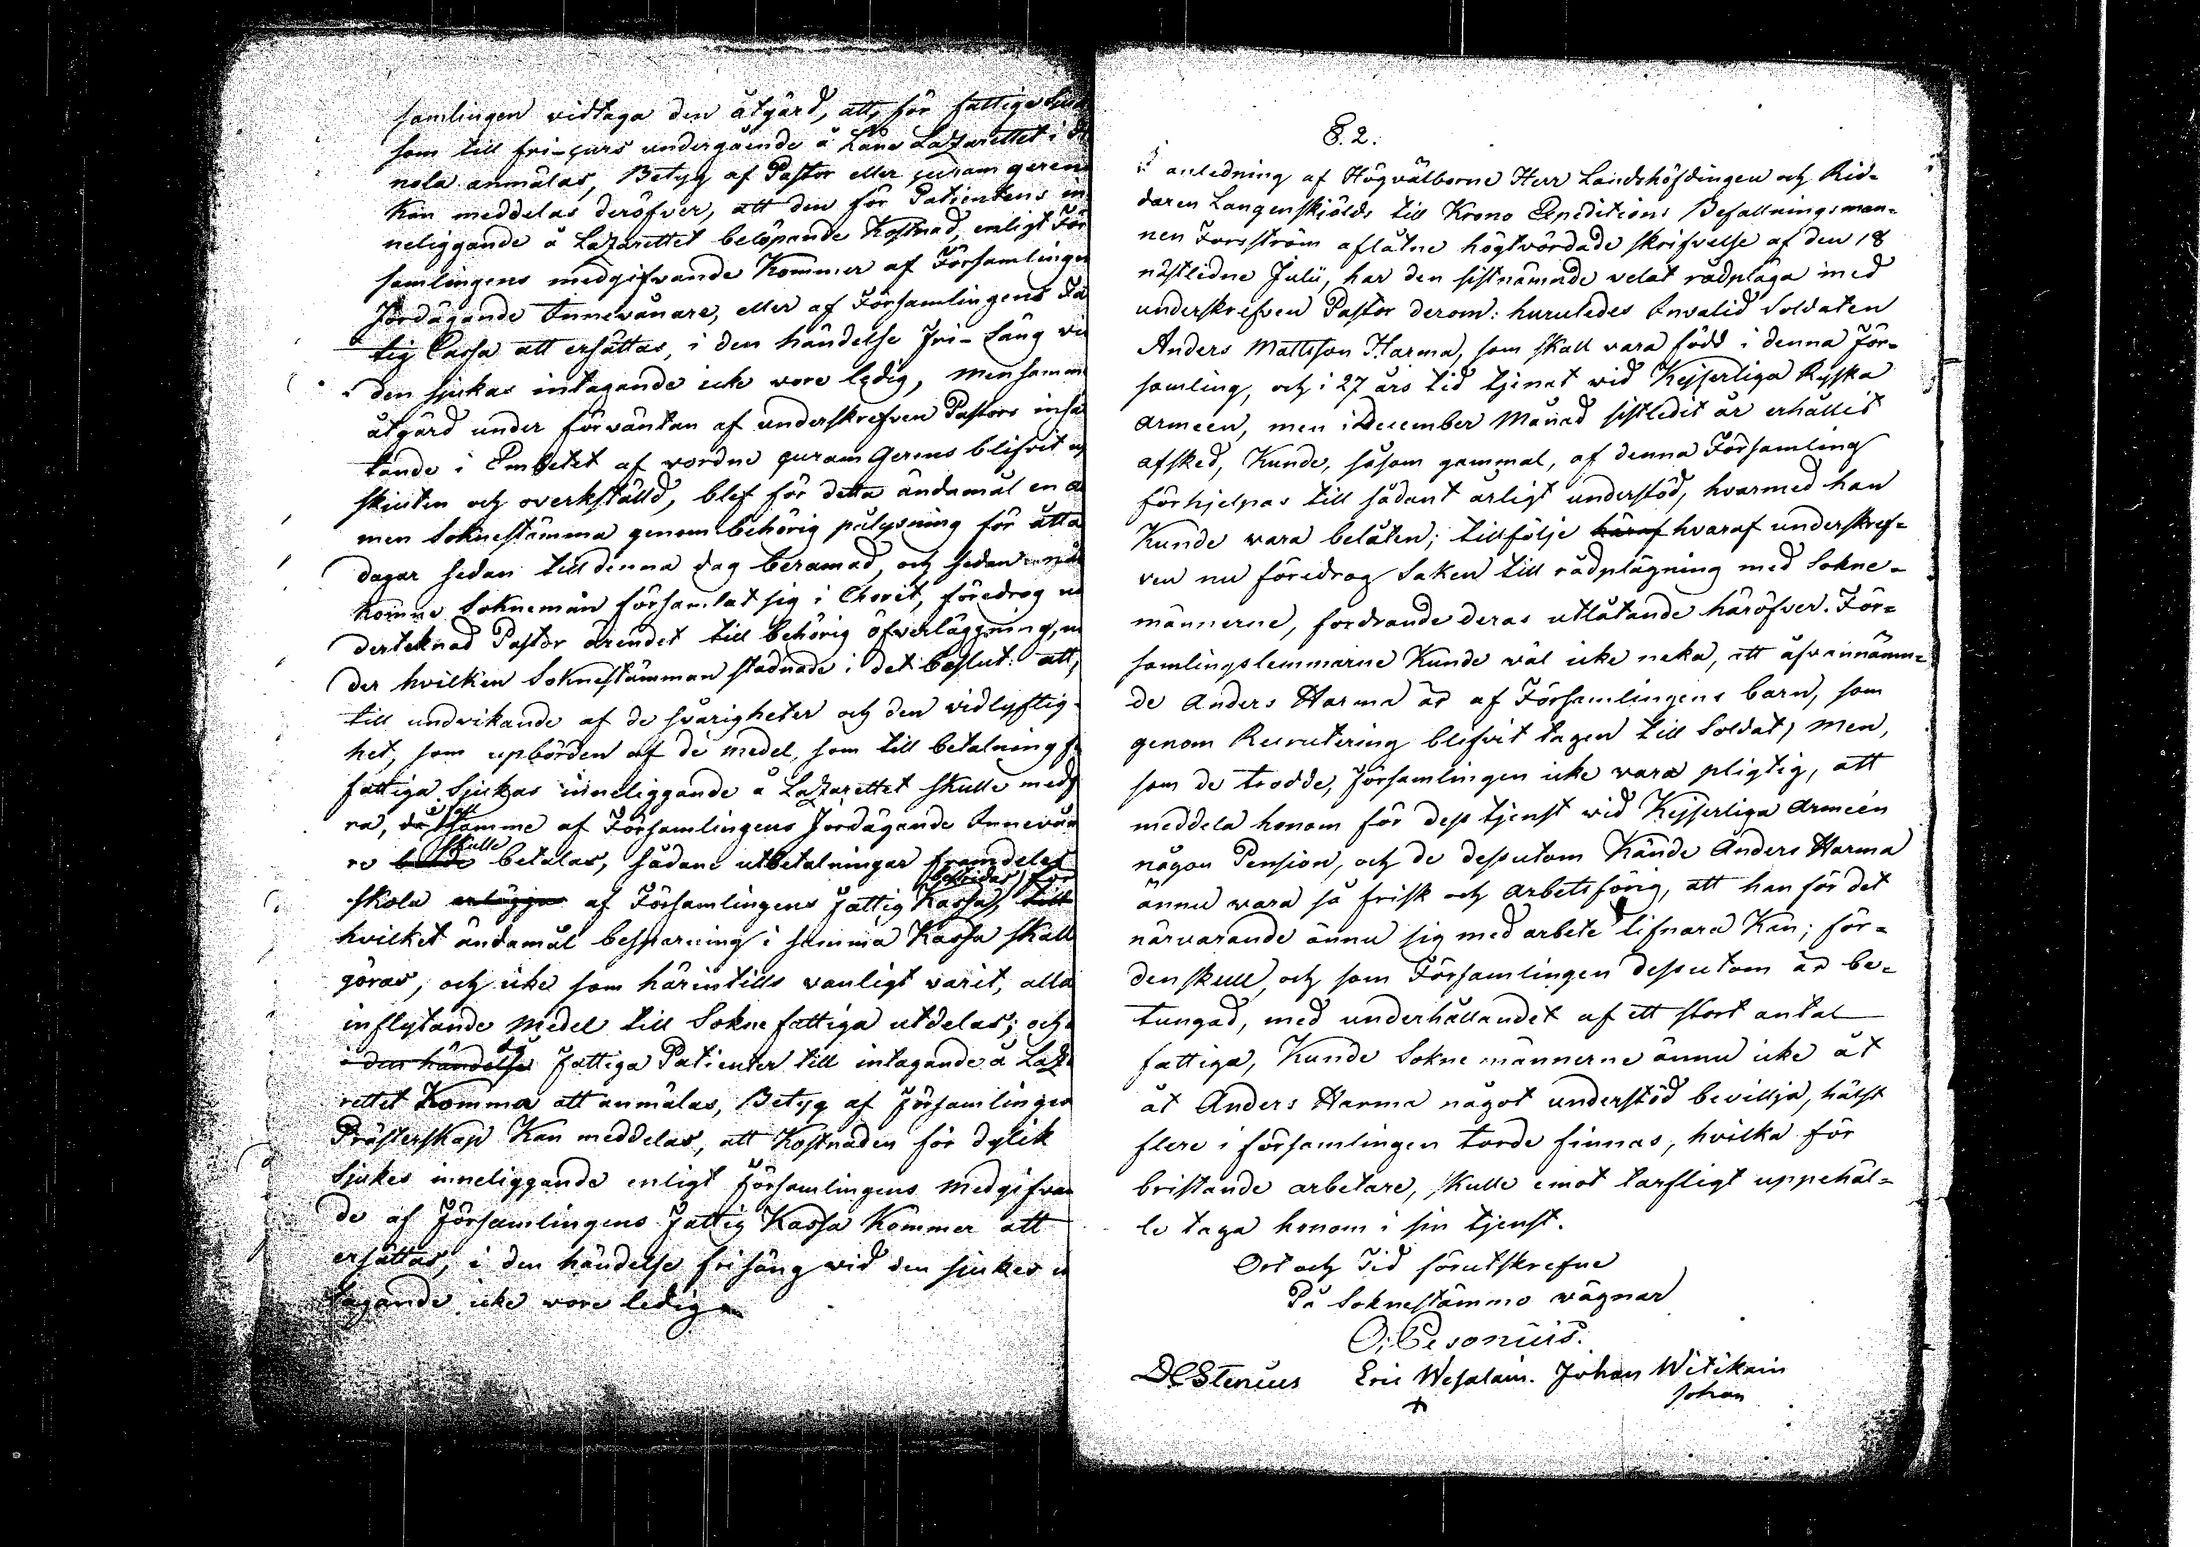 samlingen vidtaga den åtgärd, att, för fattiga
som till fri-curs undergående å Läns Lazarettet i
nola anmälas, Betyg af Pastor eller curam geren
kan meddelas deröfver, att den för Patientens in
neliggande å Lazarettet belöpande Kostnad, enligt För
samlingens medgifvande Kommer af Församlingen
Jordägande Innevånare, eller af Församlingens Fa
tig Cassa att ersättas, i den händelse Fri-Säng vi
den sjukas intagande icke vore ledig, men samm
åtgärd under förväntan af underskrefven Pastors
tande i Embetet af vordne curam Gerens blifvit up
skjuten och overkställd, blef för detta ändamål en a
men Soknestämma genom behörig pålysning för åtta
dagar sedan till denna dag beramad, och sedan när
komne Soknemän församlat sig i Choret, föredrog un
dertecknad Pastor ärendet till behörig öfverläggning, un
der hvilken Soknestämman stadnade i det beslut: att,
till undvikande af de svårigheter och den vidlyftig-
het, som upbörden af de medel, som till betalning f
fattiga Sjukas inneliggande å Lazarettet skulle medf
ra, då i fall samme af Församlingens Jordägande Innevån
re skulle betalas, sådane utbetalningar framdeles
skola erlägga af Församlingens Fattig Kassa bestridas, för till
hvilket ändamål besparning i samma Kassa skall
göras, och icke som härintills vanligt varit, alla
inflytande medel till Sokne fattiga utdelas; och
i den händelse då fattiga Patienter till intagande å Laza
rettet Komma att anmälas, Betyg af Församlingen
Prästerskap Kan meddelas, att Kostnaden för dylik
Sjukes inneliggande enligt Församlingens medgifvan
de af Församlingens Fattig Kassa Kommer att
ersättas, i den händelse frisäng vid den sjukes in
tagande icke vore ledig.
§. 2.
I anledning af Högvälborne Herr Landshöfdingen och Rid-
daren Langenskjölds till Krono Expeditions Befallningsman-
nen Forsström aflåtne högtvördade skrifvelse af den 18
nästlidne Julii, har den sistnämnde velat rådpläga med
underskrefven Pastor derom: huruledes Invalid Soldaten
Anders Mattsson Harma, som skall vara född i denna För-
samling, och i 27 års tid tjenat vid Kejserliga Ryska
Armeen, men i December Månad sistledit år erhållit
afsked, Kunde, såsom gammal, af denna Församling
förhjelpas till sådant årligt understöd, hvarmed han
Kunde vara belåten; till följe häraf hvaraf underskref-
ven nu föredrog Saken till rådplägning med Sokne-
männerne, fordrande deras utlåtande häröfver. För-
samlingslemmarne Kunde väl icke neka, att åfvannämn-
de Anders Harma är af Församlingens barn, som
genom Recrutering blifvit tagen till Soldat; men,
som de trodde, Församlingen icke vara pligtig, att
meddela honom för dess tjenst vid Kejserliga Armeén
någon Pension, och de dessutom Kände Anders Harma
ännu vara så frisk och arbetsförig, att han för det
närvarande ännu sig med arbete lifnära Kan; för-
denskull, och som Församlingen dessutom är be-
tungad, med underhållandet af ett stort antal
fattiga, Kunde Sokne männerne ännu icke åt
åt Anders Harma något understöd bevillja, hälst
flere i församlingen torde finnas, hvilka för
bristande arbetare, skulle emot tarfligt uppehäl-
le taga honom i sin tjenst.
Ort och Tid förutskrefne
På Soknestämmo vägnar
O: Pesonius.
Stenius Eric Wesalain. Johan Witikain
Johan